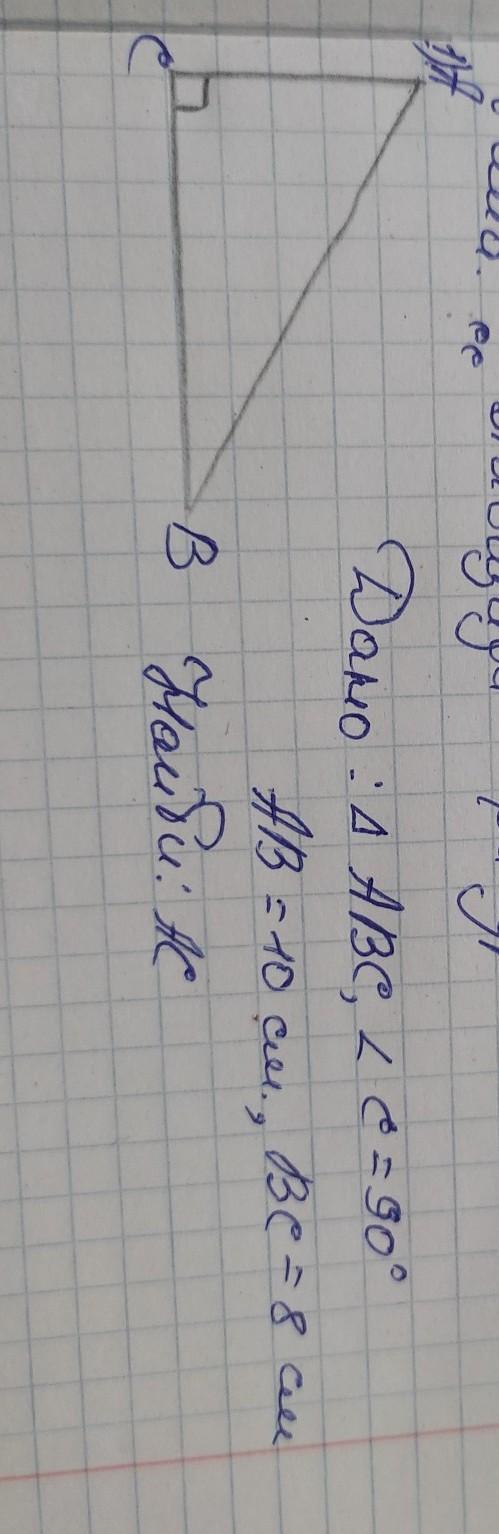 1) A
C
B
Дано: Δ ABC, ∠ C = 90°
AB = 10 см., BC = 8 см
Найди: AC